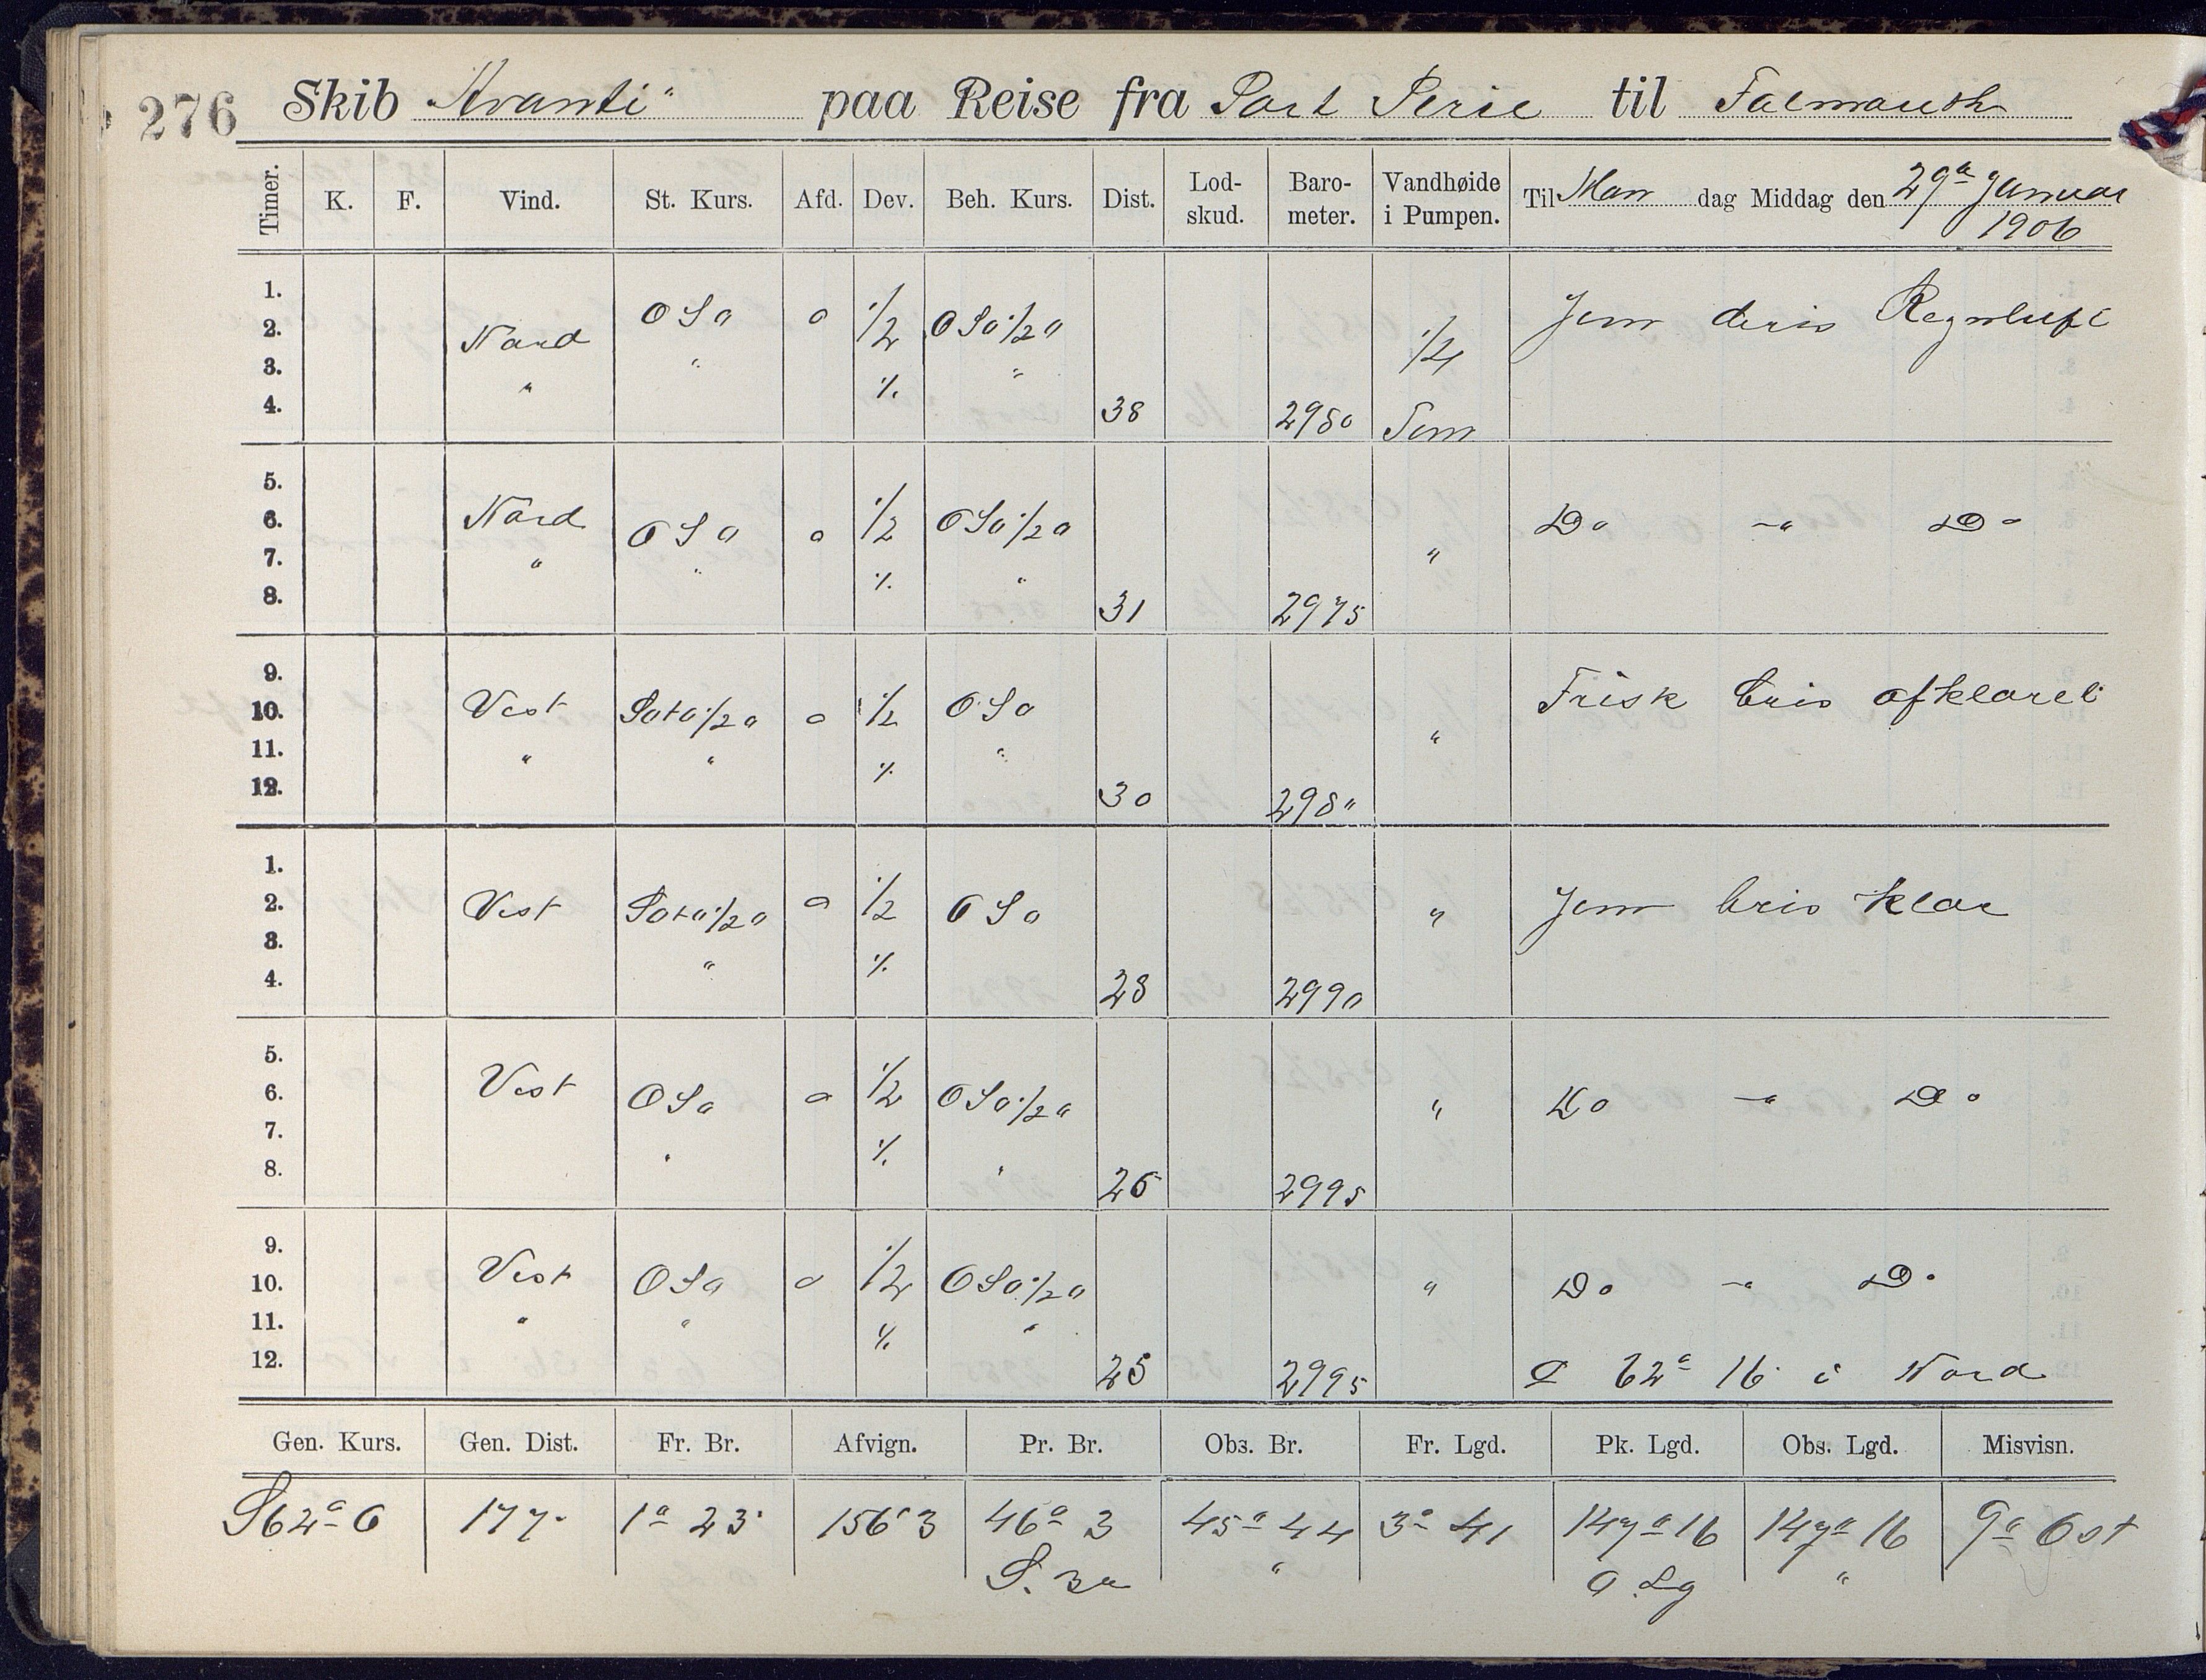 276 Skib Avanti" paa Reise fra Port Perie til Falmouth
Timer. K. F. Vind. St. Kurs. Afd. Dev. Beh. Kurs. Dist. Lod-skud. Baro-meter. Vandhøide i Pumpen. Til Man dag Middag den 29de Januar 1906
1.
2. Nord OSO 0 1/2 OSO 1/2 O 1/4 Jevn bris Regnluft
3. " " % "
4. 38 2980 Tom
5.
6. Nord OSO 0 1/2 OSO 1/2 O Do - " Do
7. " " % " "
8. 31 2975
9.
10. Vest SOtO 1/2 O 0 1/2 OSO Frisk bris afklaret
11. " " % " "
12. 30 298"
1.
2. Vest SOtO 1/2 O 0 1/2 OSO " Jevn bris klar
3. " %
4. 28 2990
5.
6. Vest OSO 0 1/2 OSO 1/2 O " Do - " Do
7. " % "
8. 26 2995
9.
10. Vest OSO 0 1/2 OSO 1/2 O " Do - " Do
11. " " % "
12. 25 2995 62° 16 i Nord
Gen. Kurs. Gen. Dist. Fr. Br. Afvign. Pr. Br. Obs. Br. Fr. Lgd. Pk. Lgd. Obs. Lgd. Misvisn.
S62° O 177 1° 23' 156'3 46° 3 45° 44 3° 41 147° 16 147° 16 9° Ost
S. Br " O Lg "